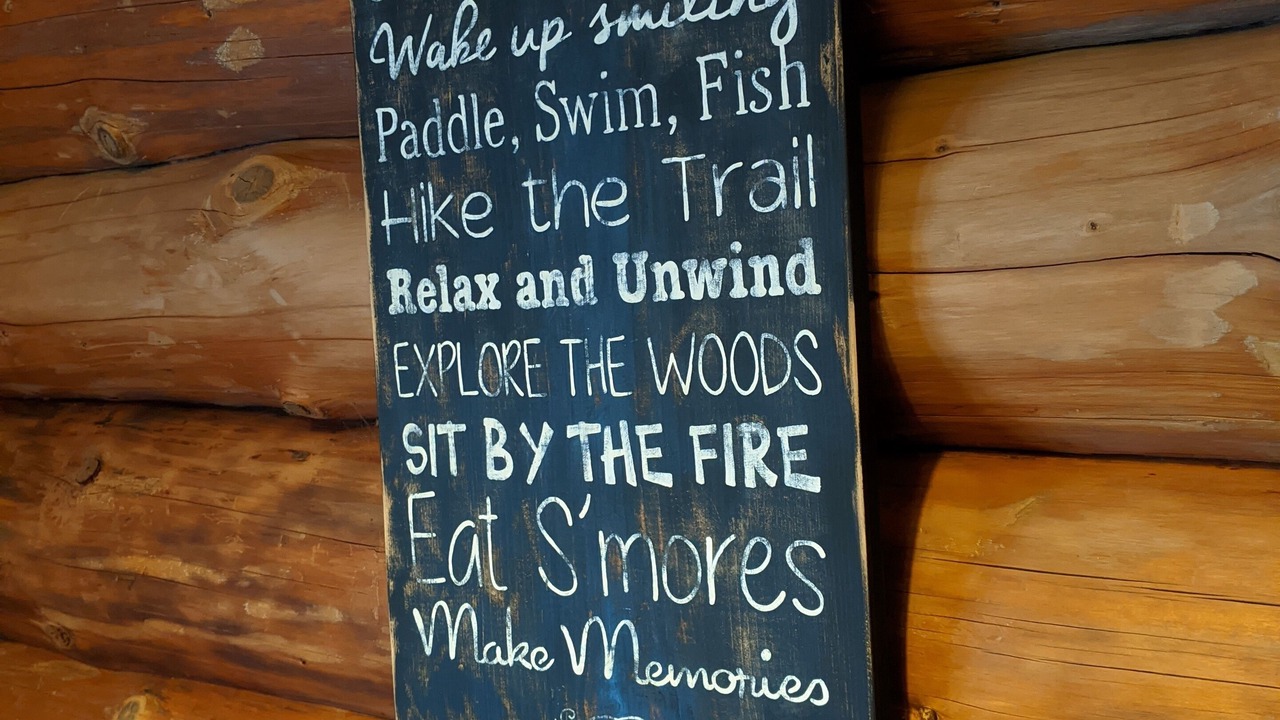 Wake up smiling
Paddle, Swim, Fish
Hike the Trail
Relax and Unwind
EXPLORE THE WOODS
SIT BY THE FIRE
Eat S'mores
Make Memories